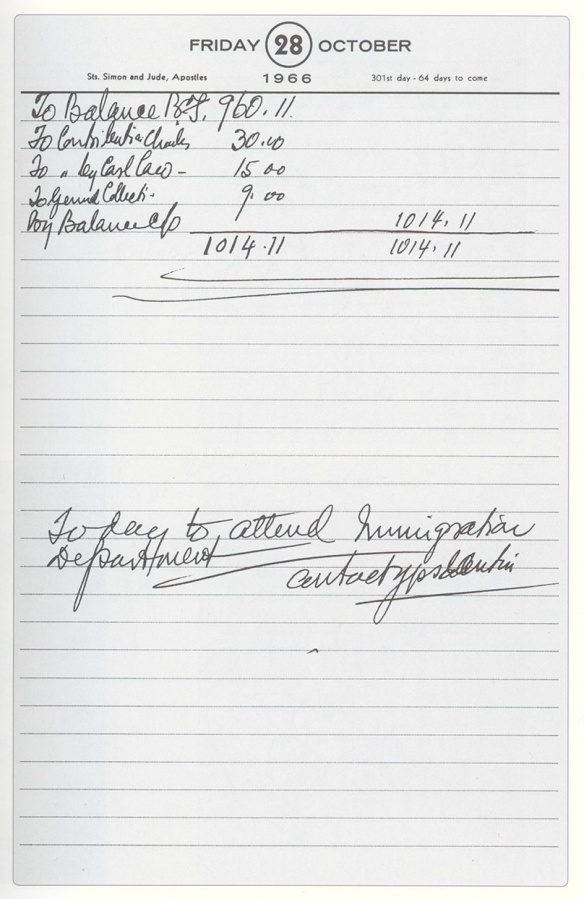 FRIDAY 28 OCTOBER
Sts. Simon and Jude, Apostles 1966 301st day - 64 days to come
To Balance B/F. 960.11.
To Contribution Charles 30.00
To " by Carl Caro - 15 00
To General Collecti- 9.00
By Balance C/D 1014.11
1014.11 1014.11
To day to, attend Immigration
Department
contact